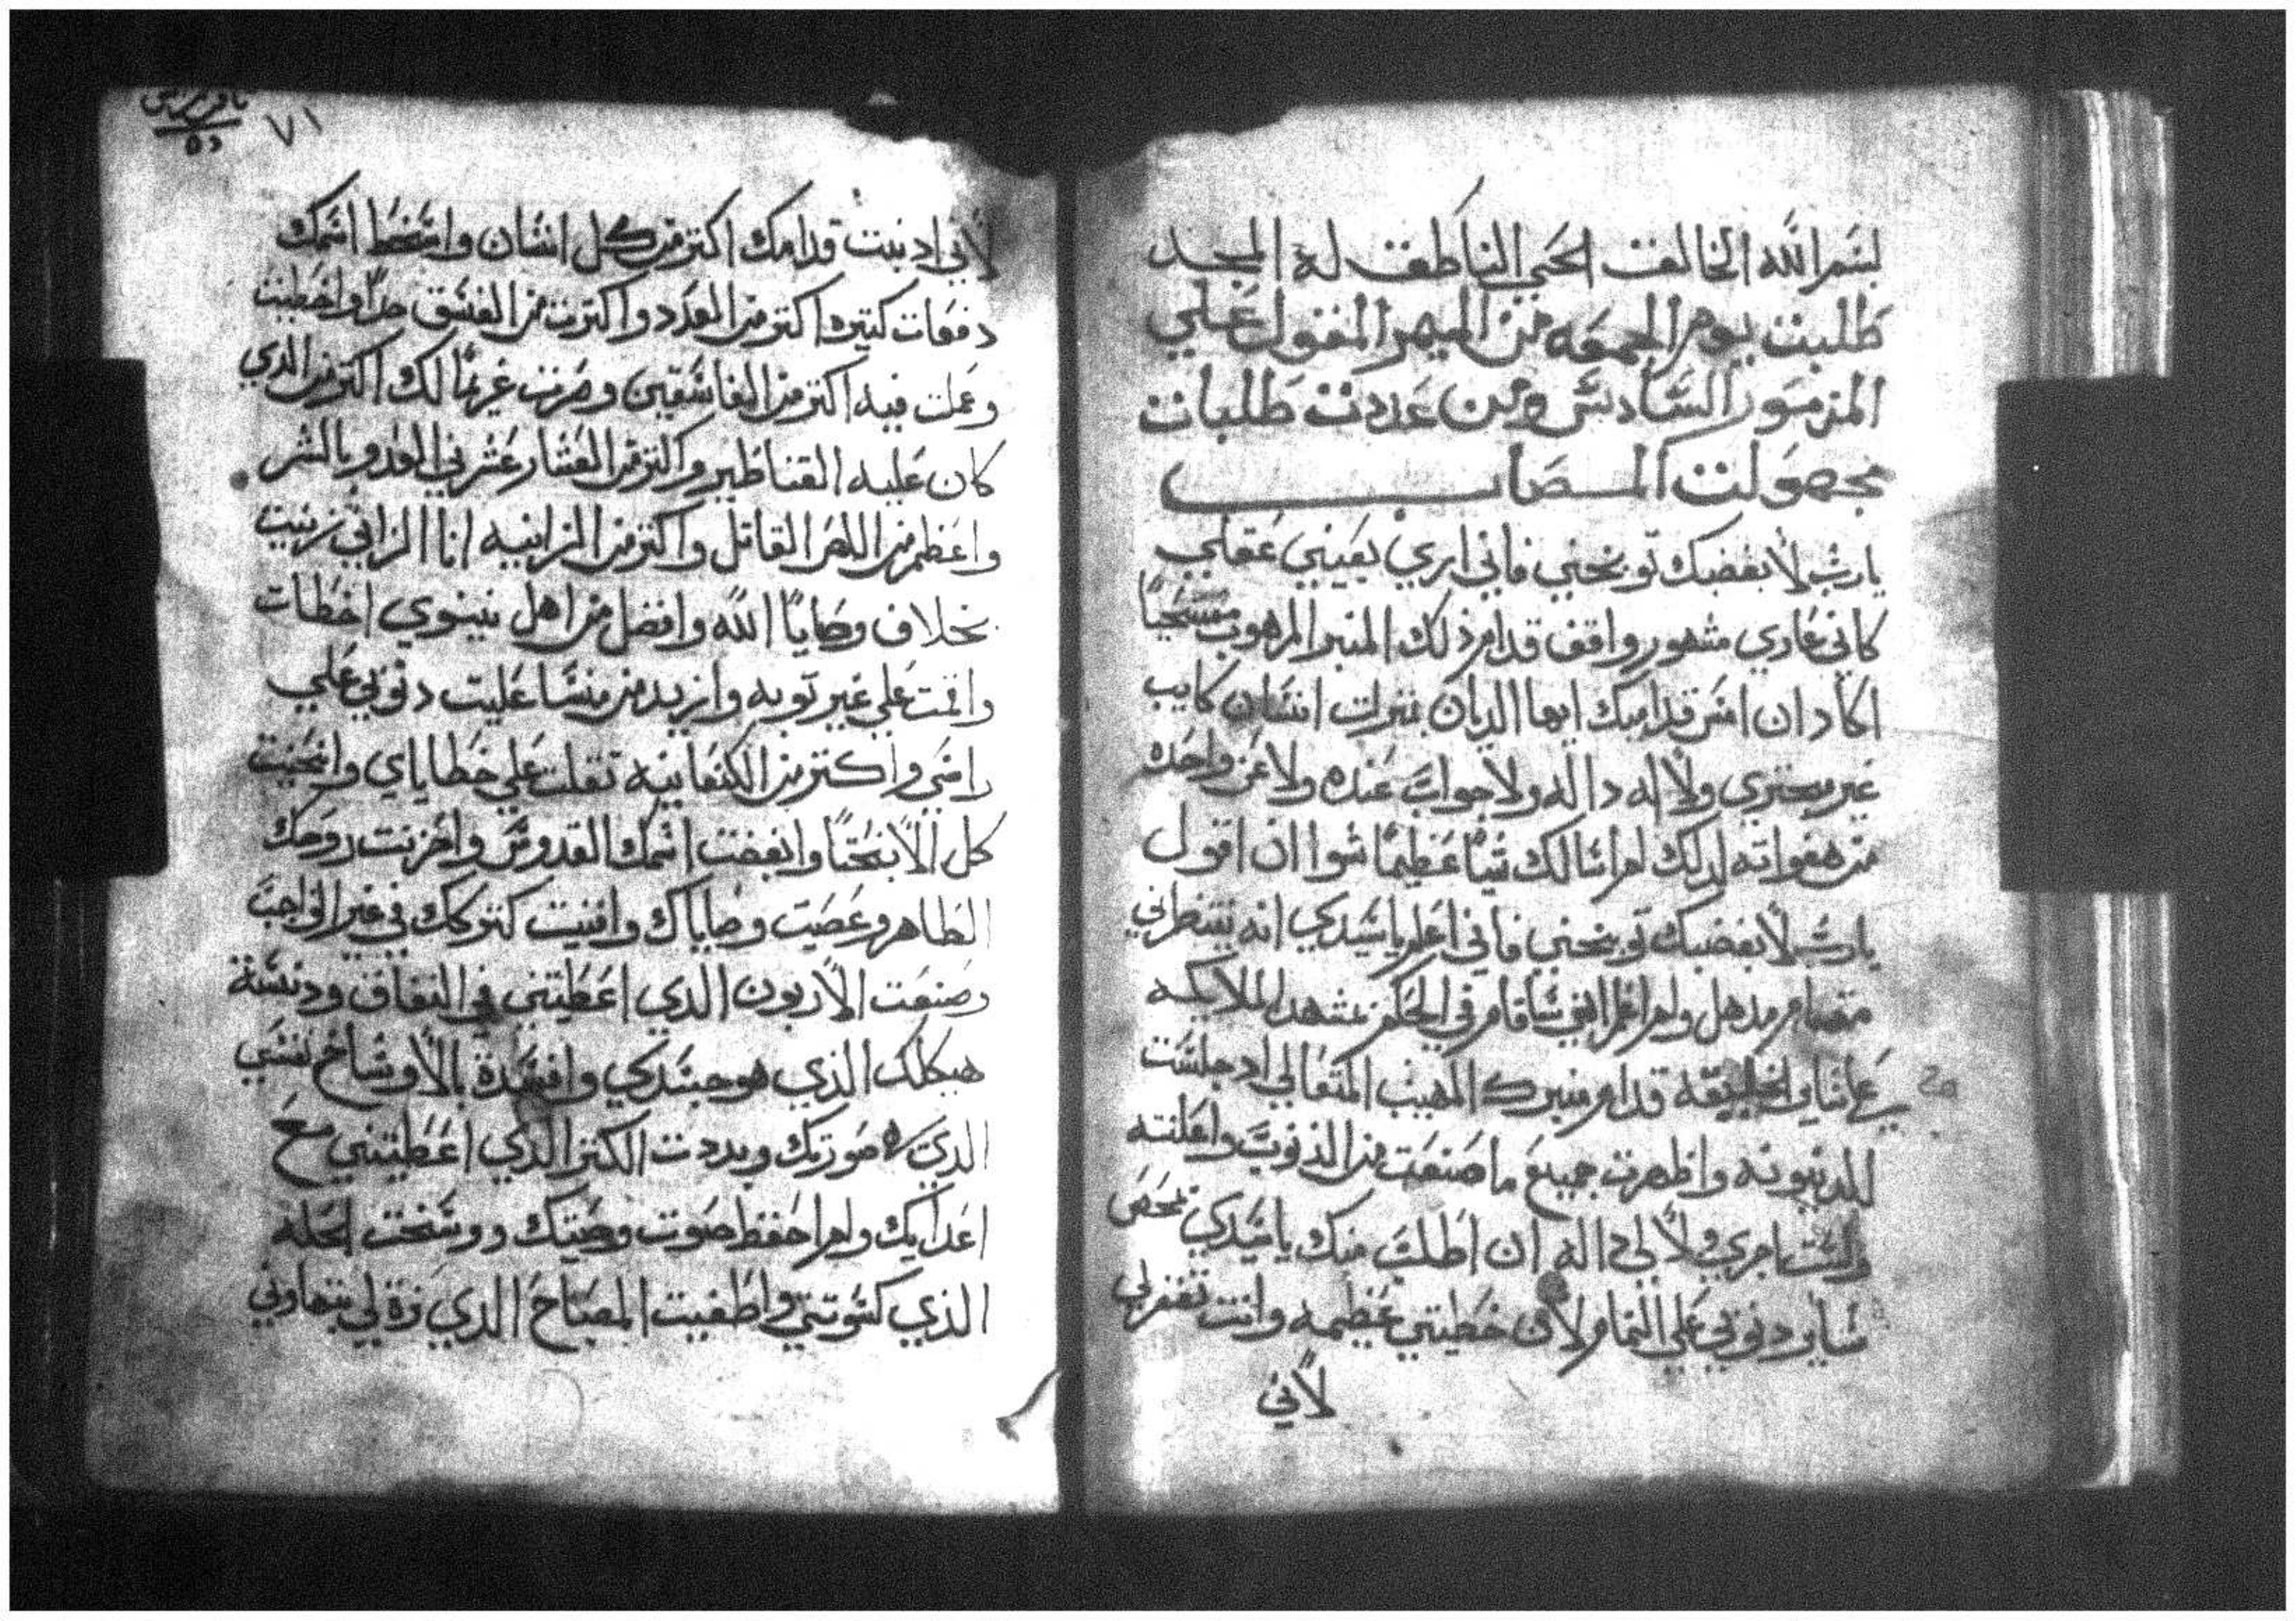 بسم الله الخالق الحي الناطق له المجد
طلبت يوم الجمعه من الميمر المقول علي
المزمور السادس ومن عددت طلبات
مجهولت المصاب
يارب لا بغضبك توبخني فاني اري بعيني عقلي
كاني عاري مشهور واقف قدام ذلك المنبر المرهوب مستحيا
اكاد ان امس قدامك ايها الديان بمنزلت انسان كايب
غير مجتري ولا له داله ولا جواب عنده ولا عن واحده
من هفواته لدلك لم اسالك شيا عظيما سوا ان اقول
يارب لا بغضبك توبخني فاني اعلم يا سيدي انه ينتظرني
مقام مدهل ولم اعلم انني ساقام في الحكم بمشهد الملايكه
قدام منبرك المهيب المتعالي اد جلست
للدينونه واظهرت جميع ما صنعت من الذنوب واعلنته
ولست بامري ولا لي داله ان اطلب منك يا سيدي تمحص
ساير دنوبي علي التمام ولان خطيتي عظيمه وانت تغفر لي
لاني
٧١
لاني ادنبت قدامك اكتر من كل انسان واسخط اسمك
دفعات كتيره اكتر من العدد واكترت من الفسق جدا واخطيت
وعملت فيه اكتر من الفاسقين وصرت غريما لك اكتر من الدي
كان عليه القناطير واكتر من العشار عشرني العدو بالشر
واعظم من اللص القاتل واكتر من الزانيه انا الزاني زنيت
بخلاف وصايا الله وافضل من اهل نينوي اخطات
واقمت علي غير توبه وازيد من منسا عليت دنوبي علي
راسي واكتر من الكنعانيه تقلت علي خطاياي وانحنيت
كل الانحنا وابغضت اسمك القدوس واحزنت روحك
الطاهر وعصيت وصاياك وافنيت كنزك في غير الواجب
وضيعت الاربون الدي اعطيتني في النفاق ودنسة
هيكلك الذي هو جسدي وافسدة بالاوساخ نفسي
صورتك وبددت الكنز الذي اعطيتني مع
اعدايك ولم احفظ صوت وصيتك ووسخت الحله
الذي كسوتني واطفيت المصباح الدي لي بتهاوني